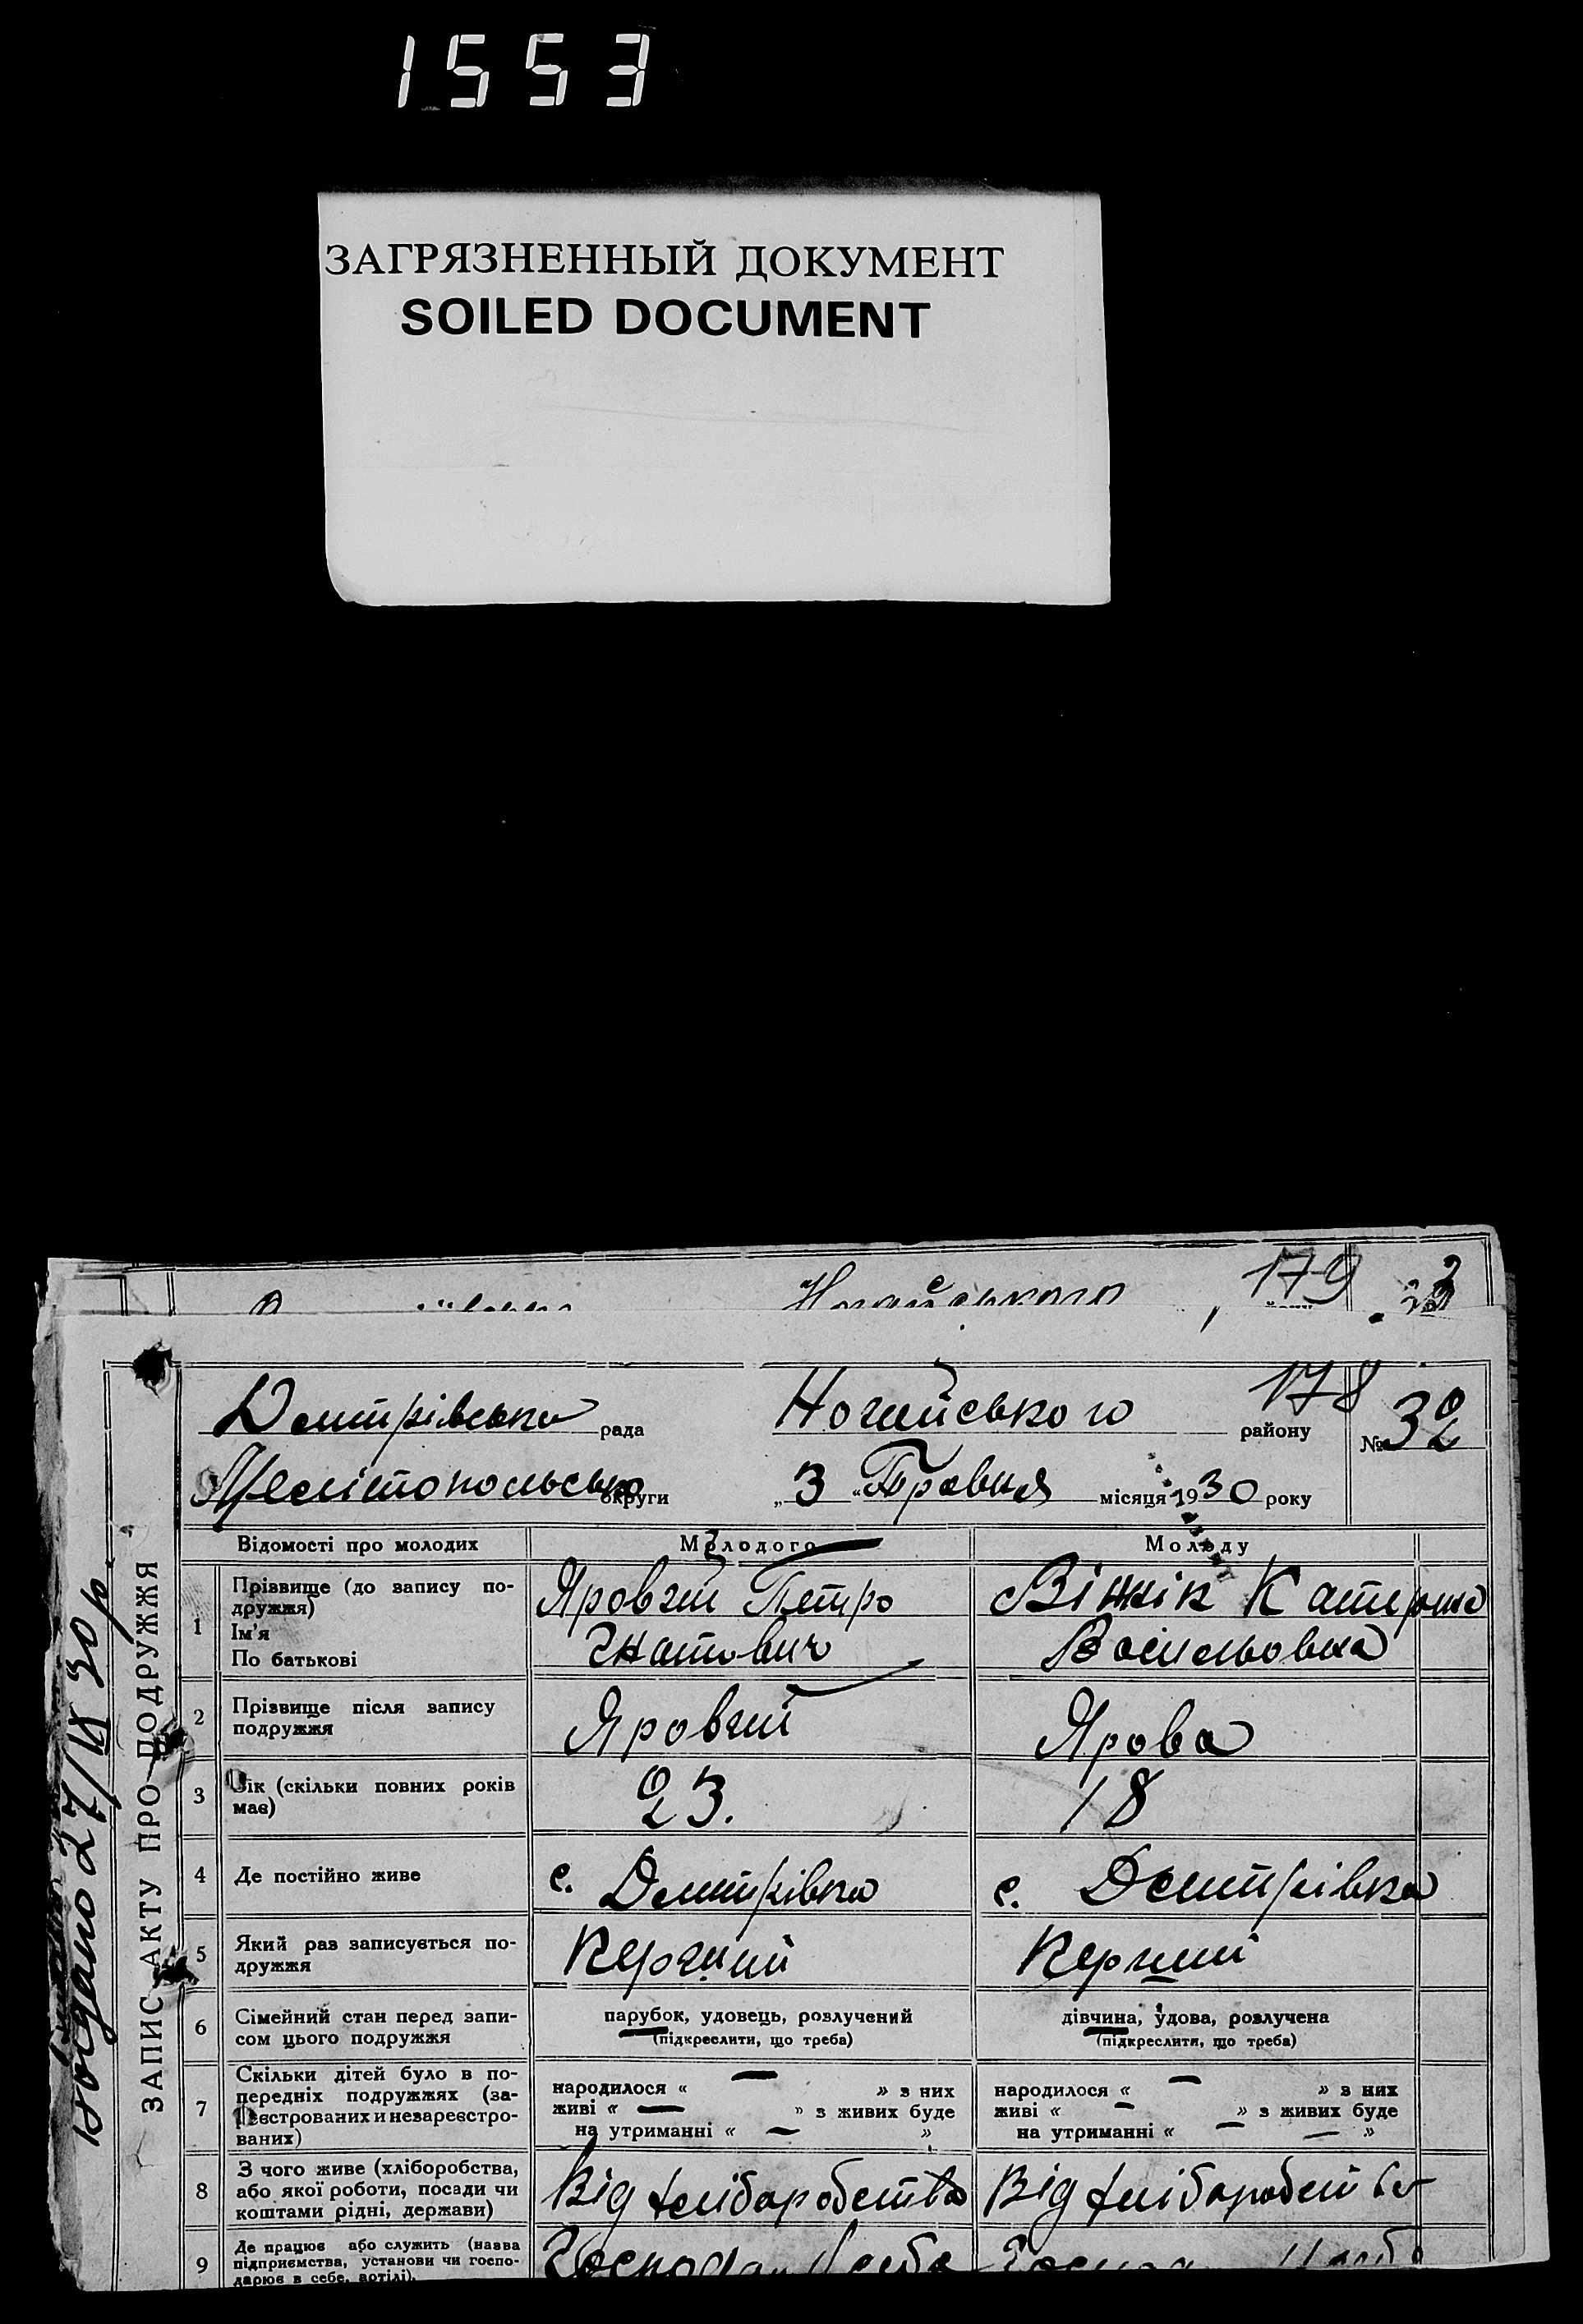 1553
ЗАГРЯЗНЕННЫЙ ДОКУМЕНТ
SOILED DOCUMENT
179
178
Дмитрівська рада Ногайського району № 32
Мелітопольсько округи „ 3 “ Травня місяця 1930 року
ЗАПИС АКТУ ПРО ПОДРУЖЖЯ
27/IX 30 р.
Відомості про молодих Молодого Молоду
1 Прізвище (до запису по-
дружжя)
Ім'я
По батькові
Яровий Петро
Гнатович
Віннік Катерина
Васильовна
2 Прізвище після запису
подружжя
Яровий
Ярова
3 Вік (скільки повних років
має)
23.
18
4 Де постійно живе
с. Дмитрівка
с. Дмитрівка
5 Який раз записується по-
дружжя
Перший
Перший
6 Сімейний стан перед запи-
сом цього подружжя
парубок, удовець, розлучений
(підкреслити, що треба)
дівчина, удова, розлучена
(підкреслити, що треба)
7 Скільки дітей було в по-
передніх подружжях (за-
реєстрованих и незареєстро-
ваних)
народилося « — » з них
живі « — » з живих буде
на утриманні « — »
народилося « — » з них
живі « — » з живих буде
на утриманні « — »
8 З чого живе (хліборобства,
або якої роботи, посади чи
коштами рідні, держави)
Від хліборобства
Від хліборобства
9 Де працює або служить (назва
підприємства, установи чи госпо-
дарює в себе, артілі).